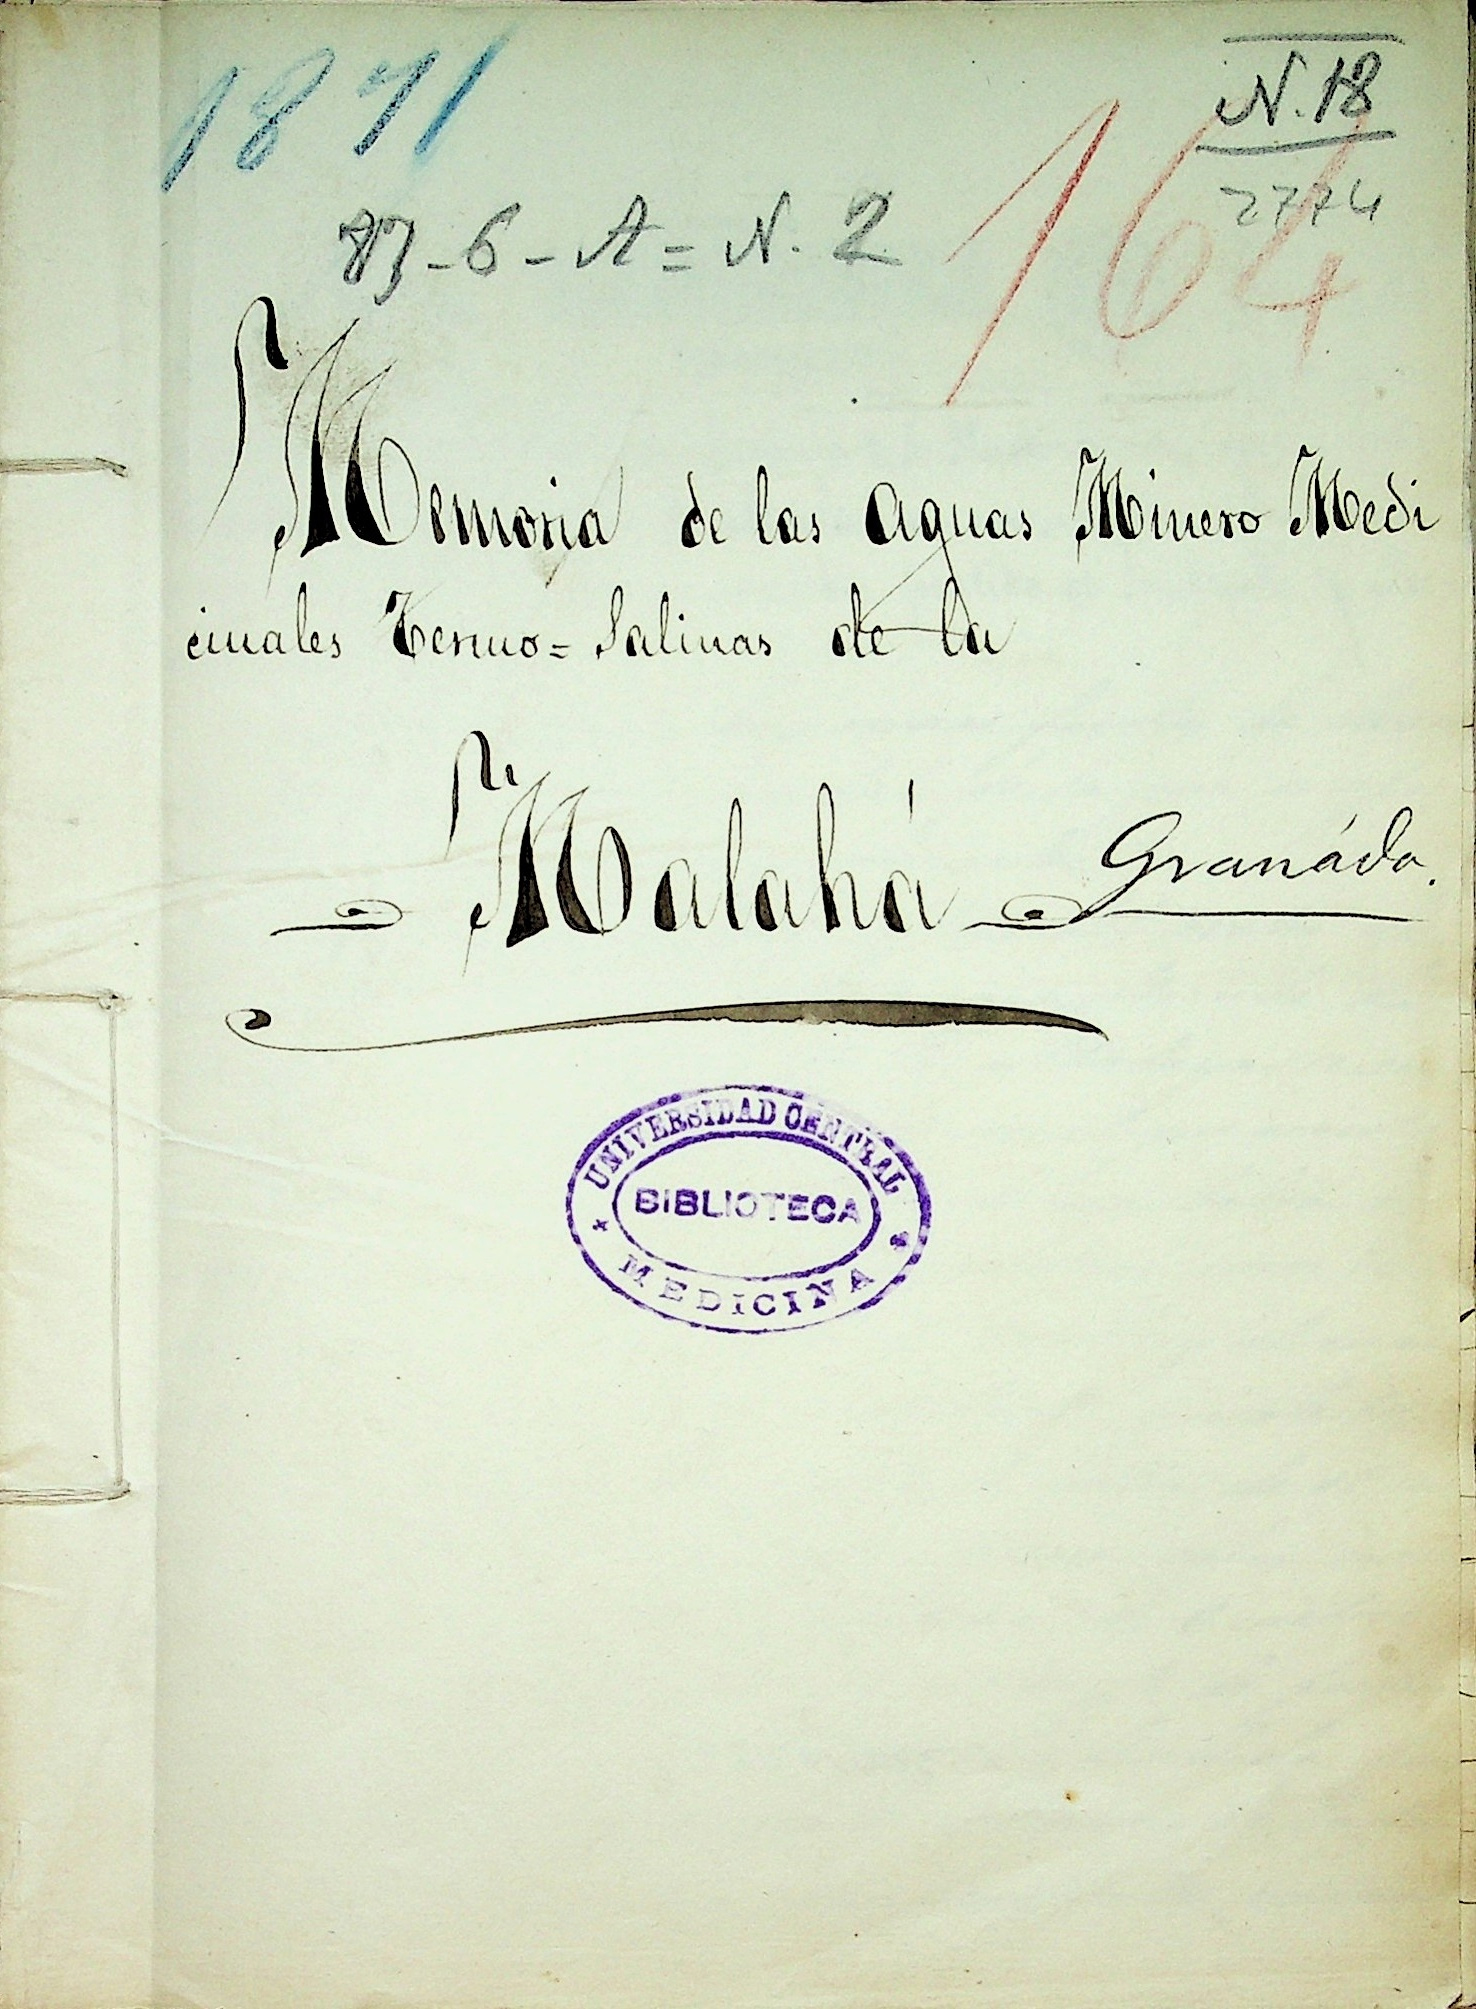 1871
N. 18
2774
164
83-6-A=N. 2
Memoria de las aguas Minero Medi
cinales Termo=Salinas de la
Malahá Granáda.
UNIVERSIDAD CENTRAL
BIBLIOTECA
MEDICINA